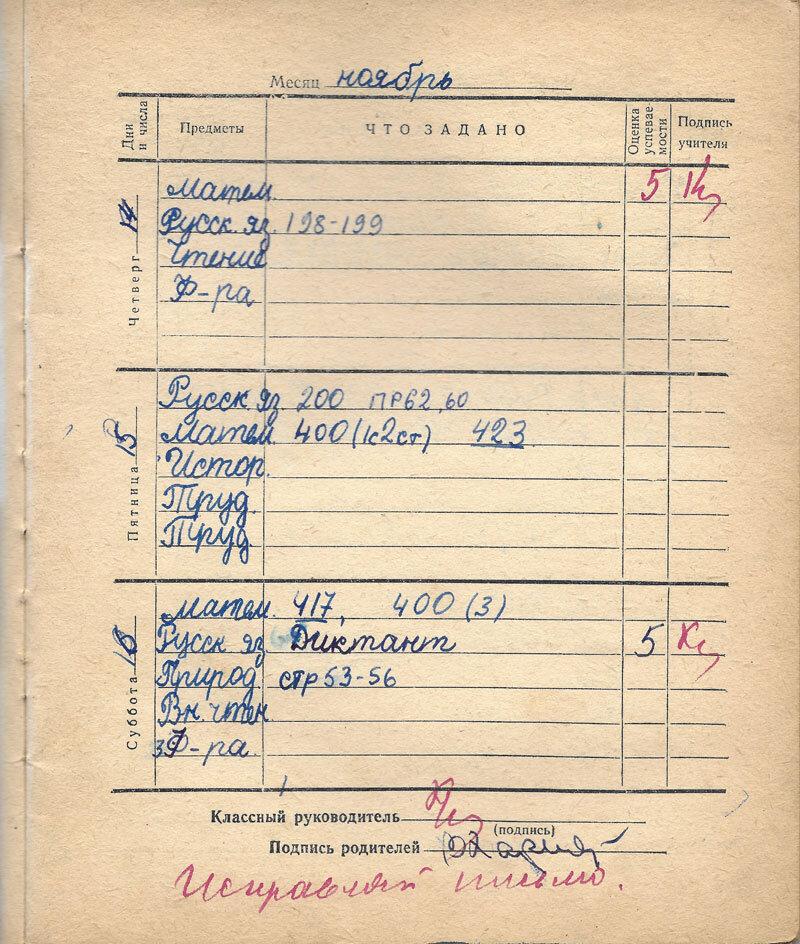 Месяц ноябрь
Дни и числа Предметы ЧТО ЗАДАНО Оценка успеваемости Подпись учителя
Четверг 14
Матем. 5
Русск. яз. 198-199
Чтение
Ф-ра
Пятница 15
Русск. яз. 200 ПР62,60
Матем. 400 (1с2ст) 423
Истор.
Труд.
Труд.
Суббота 16
Матем. 417, 400 (3)
Русск. яз. Диктант 5
Природ. стр 53-56
Вн. чтен
Ф-ра
Классный руководитель
(подпись)
Подпись родителей
Исправляй письмо.